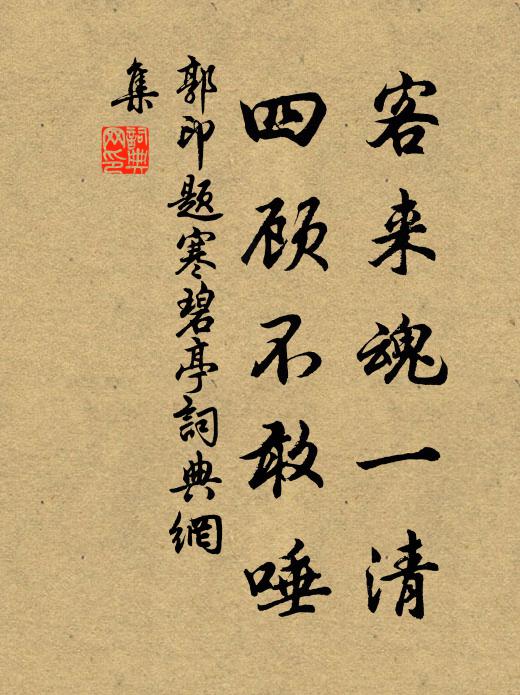 客来魂一清
四顾不敢唾
郭印题寒碧亭詞典網
集
詞典网印